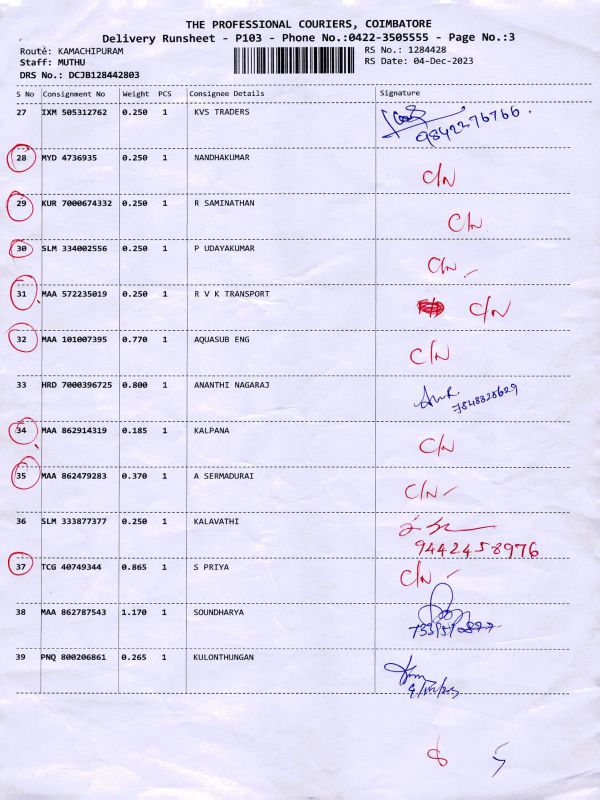 THE PROFESSIONAL COURIERS, COIMBATORE
Delivery Runsheet - P103 - Phone No.:0422-3505555 - Page No.:3
Route: KAMACHIPURAM RS No.: 1284428
Staff: MUTHU RS Date: 04-Dec-2023
DRS No.: DCJB128442803
S No Consignment No Weight PCS Consignee Details Signature
27 IXM 505312762 0.250 1 KVS TRADERS 9842276766.
28 MYD 4736935 0.250 1 NANDHAKUMAR C/N
29 KUR 7000674332 0.250 1 R SAMINATHAN C/N
30 SLM 334002556 0.250 1 P UDAYAKUMAR C/N
31 MAA 572235019 0.250 1 R V K TRANSPORT C/N
32 MAA 101007395 0.770 1 AQUASUB ENG C/N
33 HRD 7000396725 0.800 1 ANANTHI NAGARAJ
34 MAA 862914319 0.185 1 KALPANA C/N
35 MAA 862479283 0.370 1 A SERMADURAI C/N
36 SLM 333877377 0.250 1 KALAVATHI 9442458976
37 TCG 40749344 0.865 1 S PRIYA C/N
38 MAA 862787543 1.170 1 SOUNDHARYA
39 PNQ 800206861 0.265 1 KULONTHUNGAN